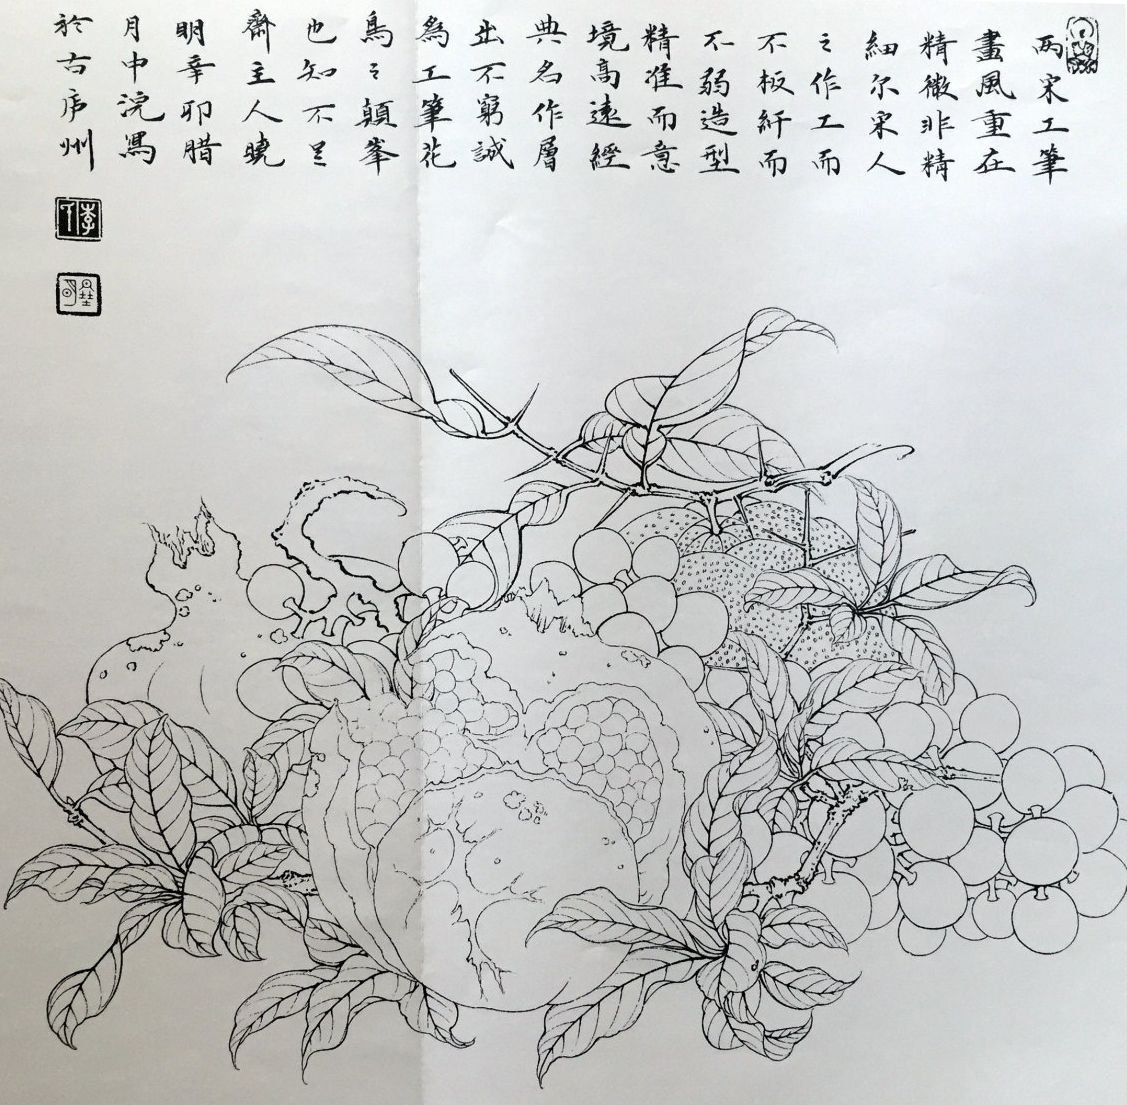 两宋工筆
畫風重在
精微非精
細尔宋人
之作工而
不板纤而
不弱造型
精准而意
境高遠經
典名作層
出不窮誠
為工筆花
鳥之顛峯
也知不足
齋主人曉
明辛卯腊
月中浣寫
於古庐州